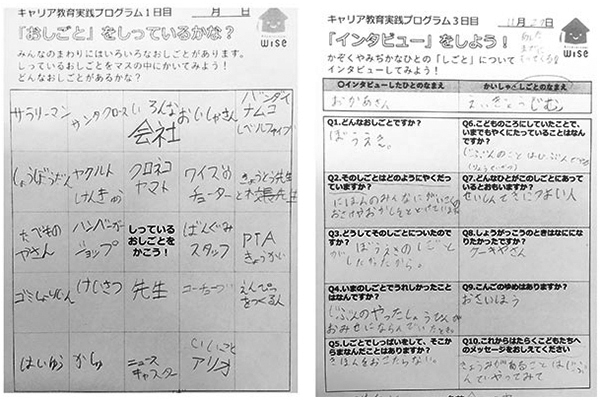 キャリア教育実践プログラム1日目
月 日
「おしごと」をしっているかな?
wise
みんなのまわりにはいろいろなおしごとがあります。
しっているおしごとをマスの中にかいてみよう!
どんなおしごとがあるかな?
サラリーマン
サンタクロース
いろんな
会社
おいしゃさん
バンダイ
ナムコ
レベルファイブ
しょうぼうだん
ヤクルト
けんきゅう
クロネコ
ヤマト
ワイズの
チューター
きょうとう先生
たべもの
やさん
ハンバーガー
ショップ
しっている
おしごとを
かこう!
ばんぐみ
スタッフ
PTA
きょうかい
けいさつ
先生
えんぴつ
をつくる人
はいゆう
かしゅ
ニュース
キャスター
アリオ
キャリア教育実践プログラム3日目
11月
日
「インタビュー」をしよう!
wise
かぞくやみぢかなひとの「しごと」について
インタビューしてみよう!
〇インタビューしたひとのなまえ
おかあさん
かいしゃとしごとのなまえ
じむ
Q1.どんなおしごとですか?
ぼうえき。
Q2.そのしごとはどのようにやくだっていますか?
Q3.どうしてそのしごとについたのですか?
ぼうえきのしごと
がしたかったから。
Q4.いまのしごとでうれしかったことはなんですか?
じぶんのやったしょうひんが
おみせにならんでいたとき。
Q5.しごとでしっぱいをして、そこからまなんだことはありますか?
きほんをおこたらない。
Q6.こどものころにしていたことで、いまでもやくにたっていることはなんですか?
Q7.どんなひとがこのしごとにあっているとおもいますか?
せいしんてきにつよい人
Q8.しょうがっこうのときはなにになりたかったですか?
ケーキやさん
Q9.こんごのゆめはありますか?
おさいほう
Q10.これからはたらくこどもたちへのメッセージをおしえてください
きょうみがあることはじぶ
んでやってみて